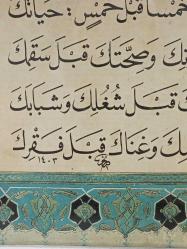 خمسا قبل خمس: حياتك
وصحتك قبل سقمك
قبل شغلك وشبابك
وغناك قبل فقرك
١٤٠٣